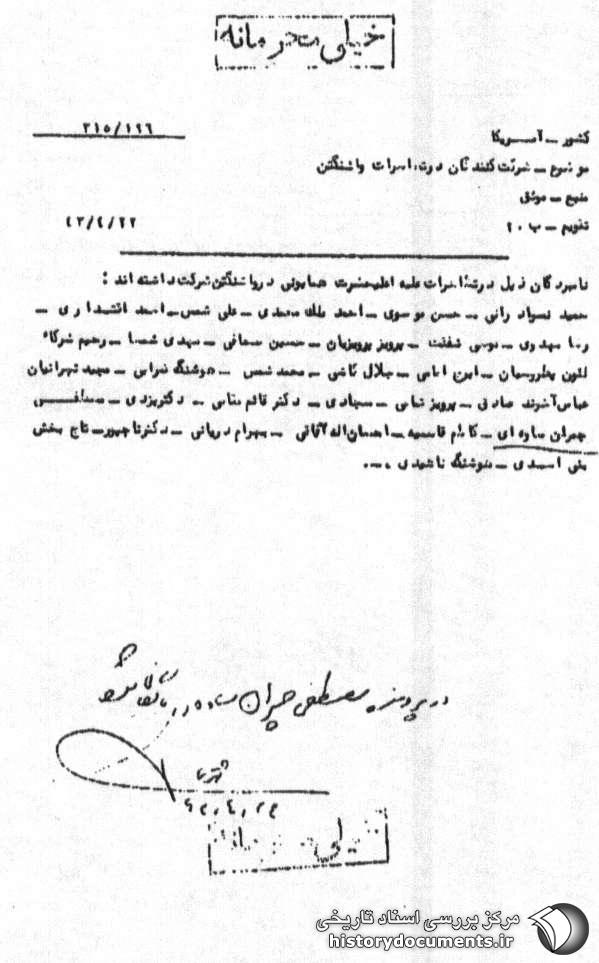 خیلی محرمانه
۳۱۵/۱۹۶
کشور ــ آمریکا
موضوع ــ شرکت کنندگان در تظاهرات واشنگتن
منبع ــ موثق
تقویم ــ ب ۲۰
۴۳/۴/۲۲
نامبردگان ذیل در تظاهرات علیه اعلیحضرت همایونی در واشنگتن شرکت داشته اند :
حمید نسواد رانی ــ حسن موسوی ــ احمد ملک محمدی ــ علی شمس ــ اسد اقتداری ــ
رضا مهدوی ــ موسی شفقت ــ پرویز پرویزیان ــ حسین صحافی ــ مهدی شمسا ــ رحیم شرکاء
لئون پطروسیان ــ امامی ــ جلال کاشی ــ محمد شمس ــ هوشنگ ــ مجید تهرانیان
عباس آخوند صادقی ــ پرویز ــ سجادی ــ دکتر قائم مقامی ــ دکتر یزدی ــ مصطفی
چمران ساوه ای ــ کاظم قاسمیه ــ احسان اله آقائی ــ بهرام دریائی ــ دکتر تاجپور ــ تاج بخش
علی اسدی ــ هوشنگ ناهیدی ...
در پرونده مصطفی چمران ساوه
خیلی محرمانه
مرکز بررسی اسناد تاریخی
historydocuments.ir